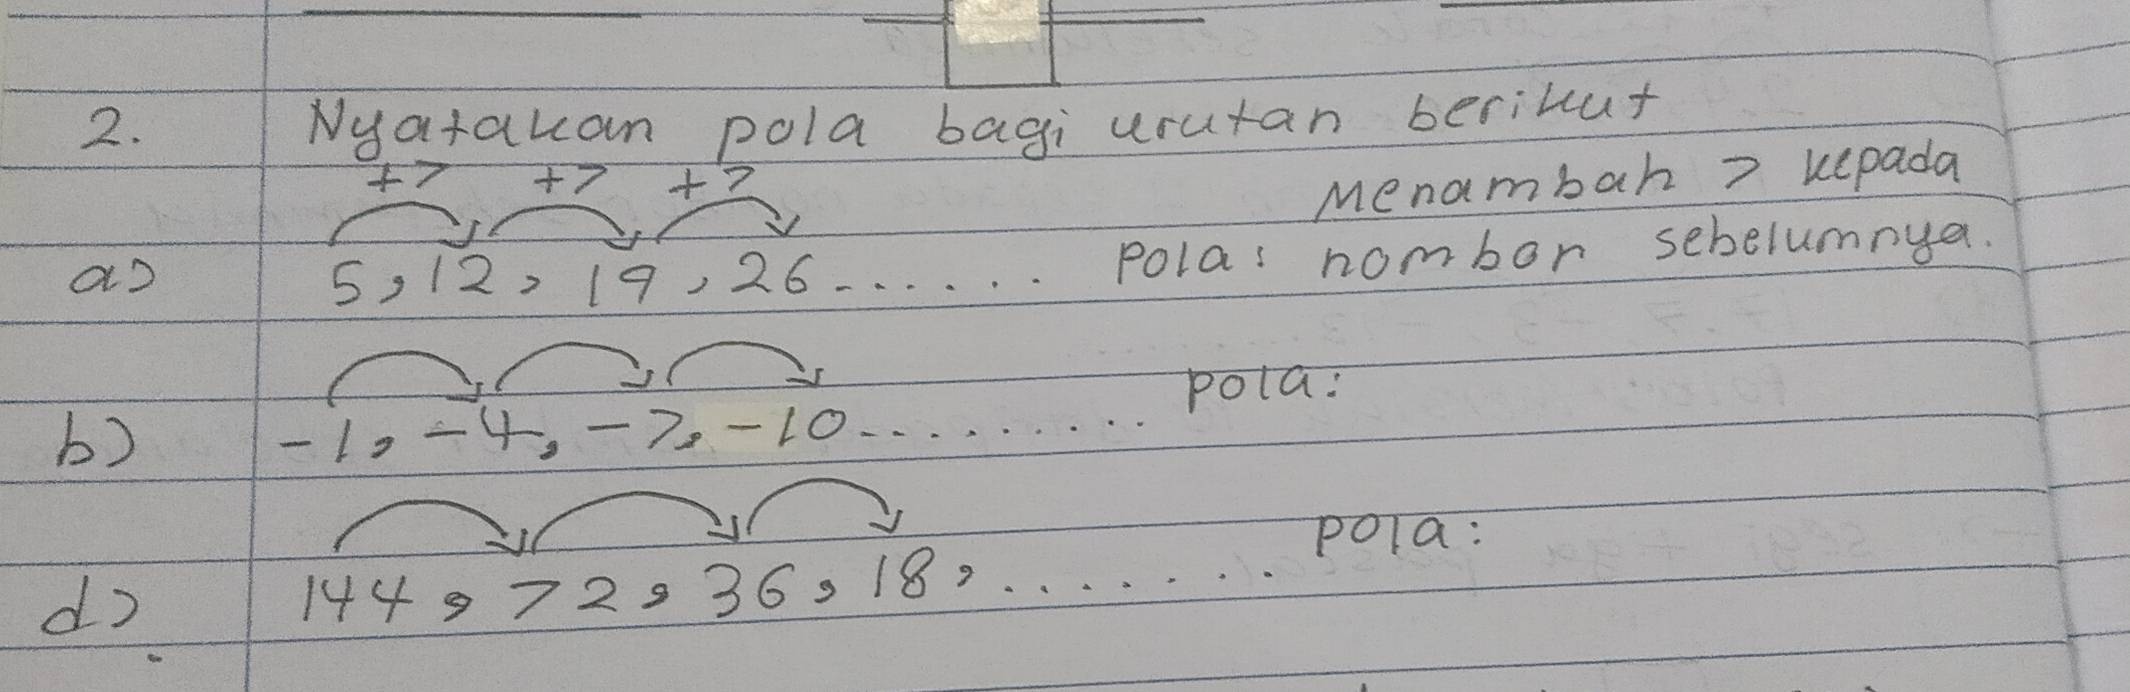 2. Nyatakan pola bagi urutan berikut
+7 +7 +7
Menambah 7 kepada
a) 5, 12, 19, 26 ...... Pola: nombor sebelumnya.
b) -1, -4, -7, -10 .......... Pola:
d) 144, 72, 36, 18, ....... Pola: